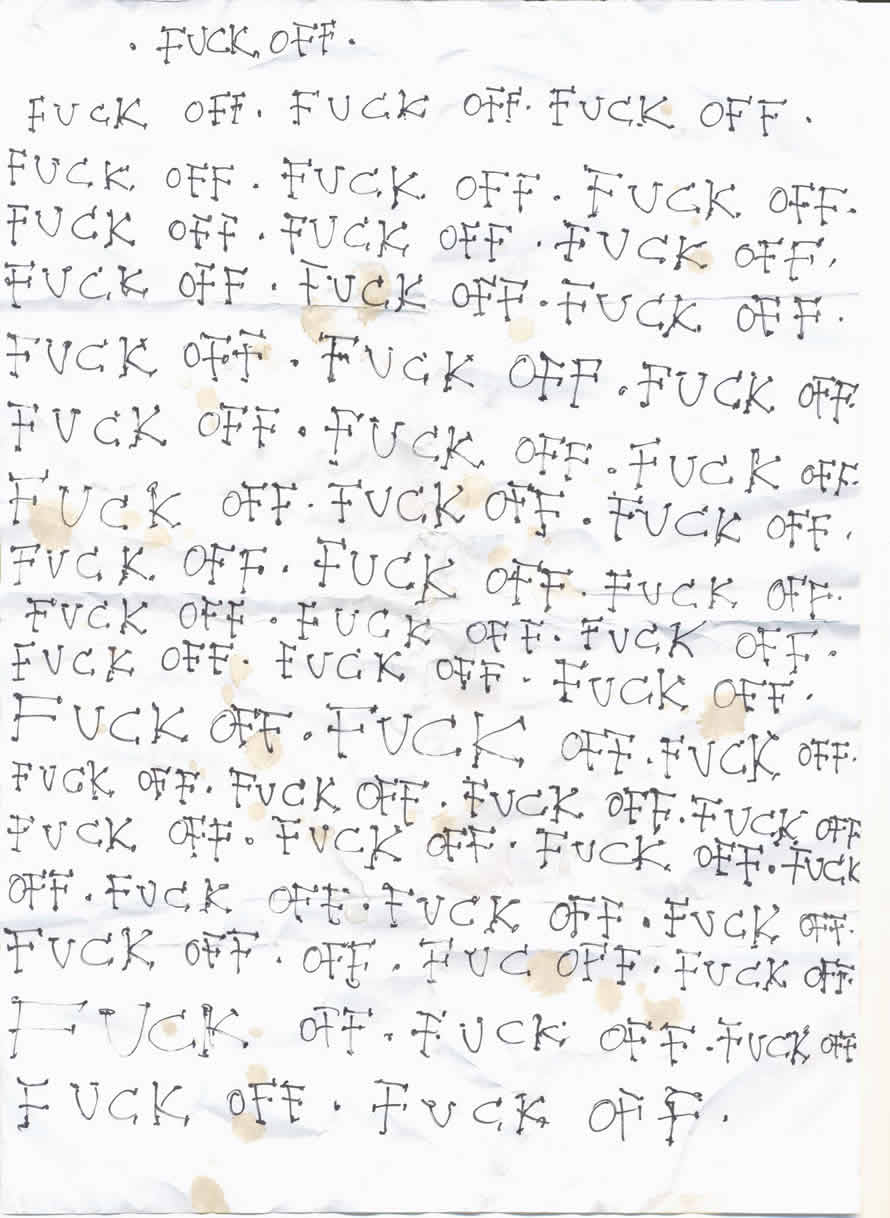 . FUCK OFF.
FUCK OFF. FUCK OFF. FUCK OFF.
FUCK OFF. FUCK OFF. FUCK OFF.
FUCK OFF. FUCK OFF. FUCK OFF.
FUCK OFF. FUCK OFF. FUCK OFF.
FUCK OFF. FUCK OFF. FUCK OFF.
FUCK OFF. FUCK OFF. FUCK OFF.
FUCK OFF. FUCK OFF. FUCK OFF.
FUCK OFF. FUCK OFF. FUCK OFF.
FUCK OFF. FUCK OFF. FUCK OFF.
FUCK OFF. FUCK OFF. FUCK OFF.
FUCK OFF. FUCK OFF. FUCK OFF.
FUCK OFF. FUCK OFF. FUCK OFF. FUCK OFF
FUCK OFF. FUCK OFF. FUCK OFF. FUCK
OFF. FUCK OFF. FUCK OFF. FUCK OFF.
FUCK OFF. OFF. FUC OFF. FUCK OFF.
FUCK OFF. FUCK OFF. FUCK OFF
FUCK OFF. FUCK OFF.